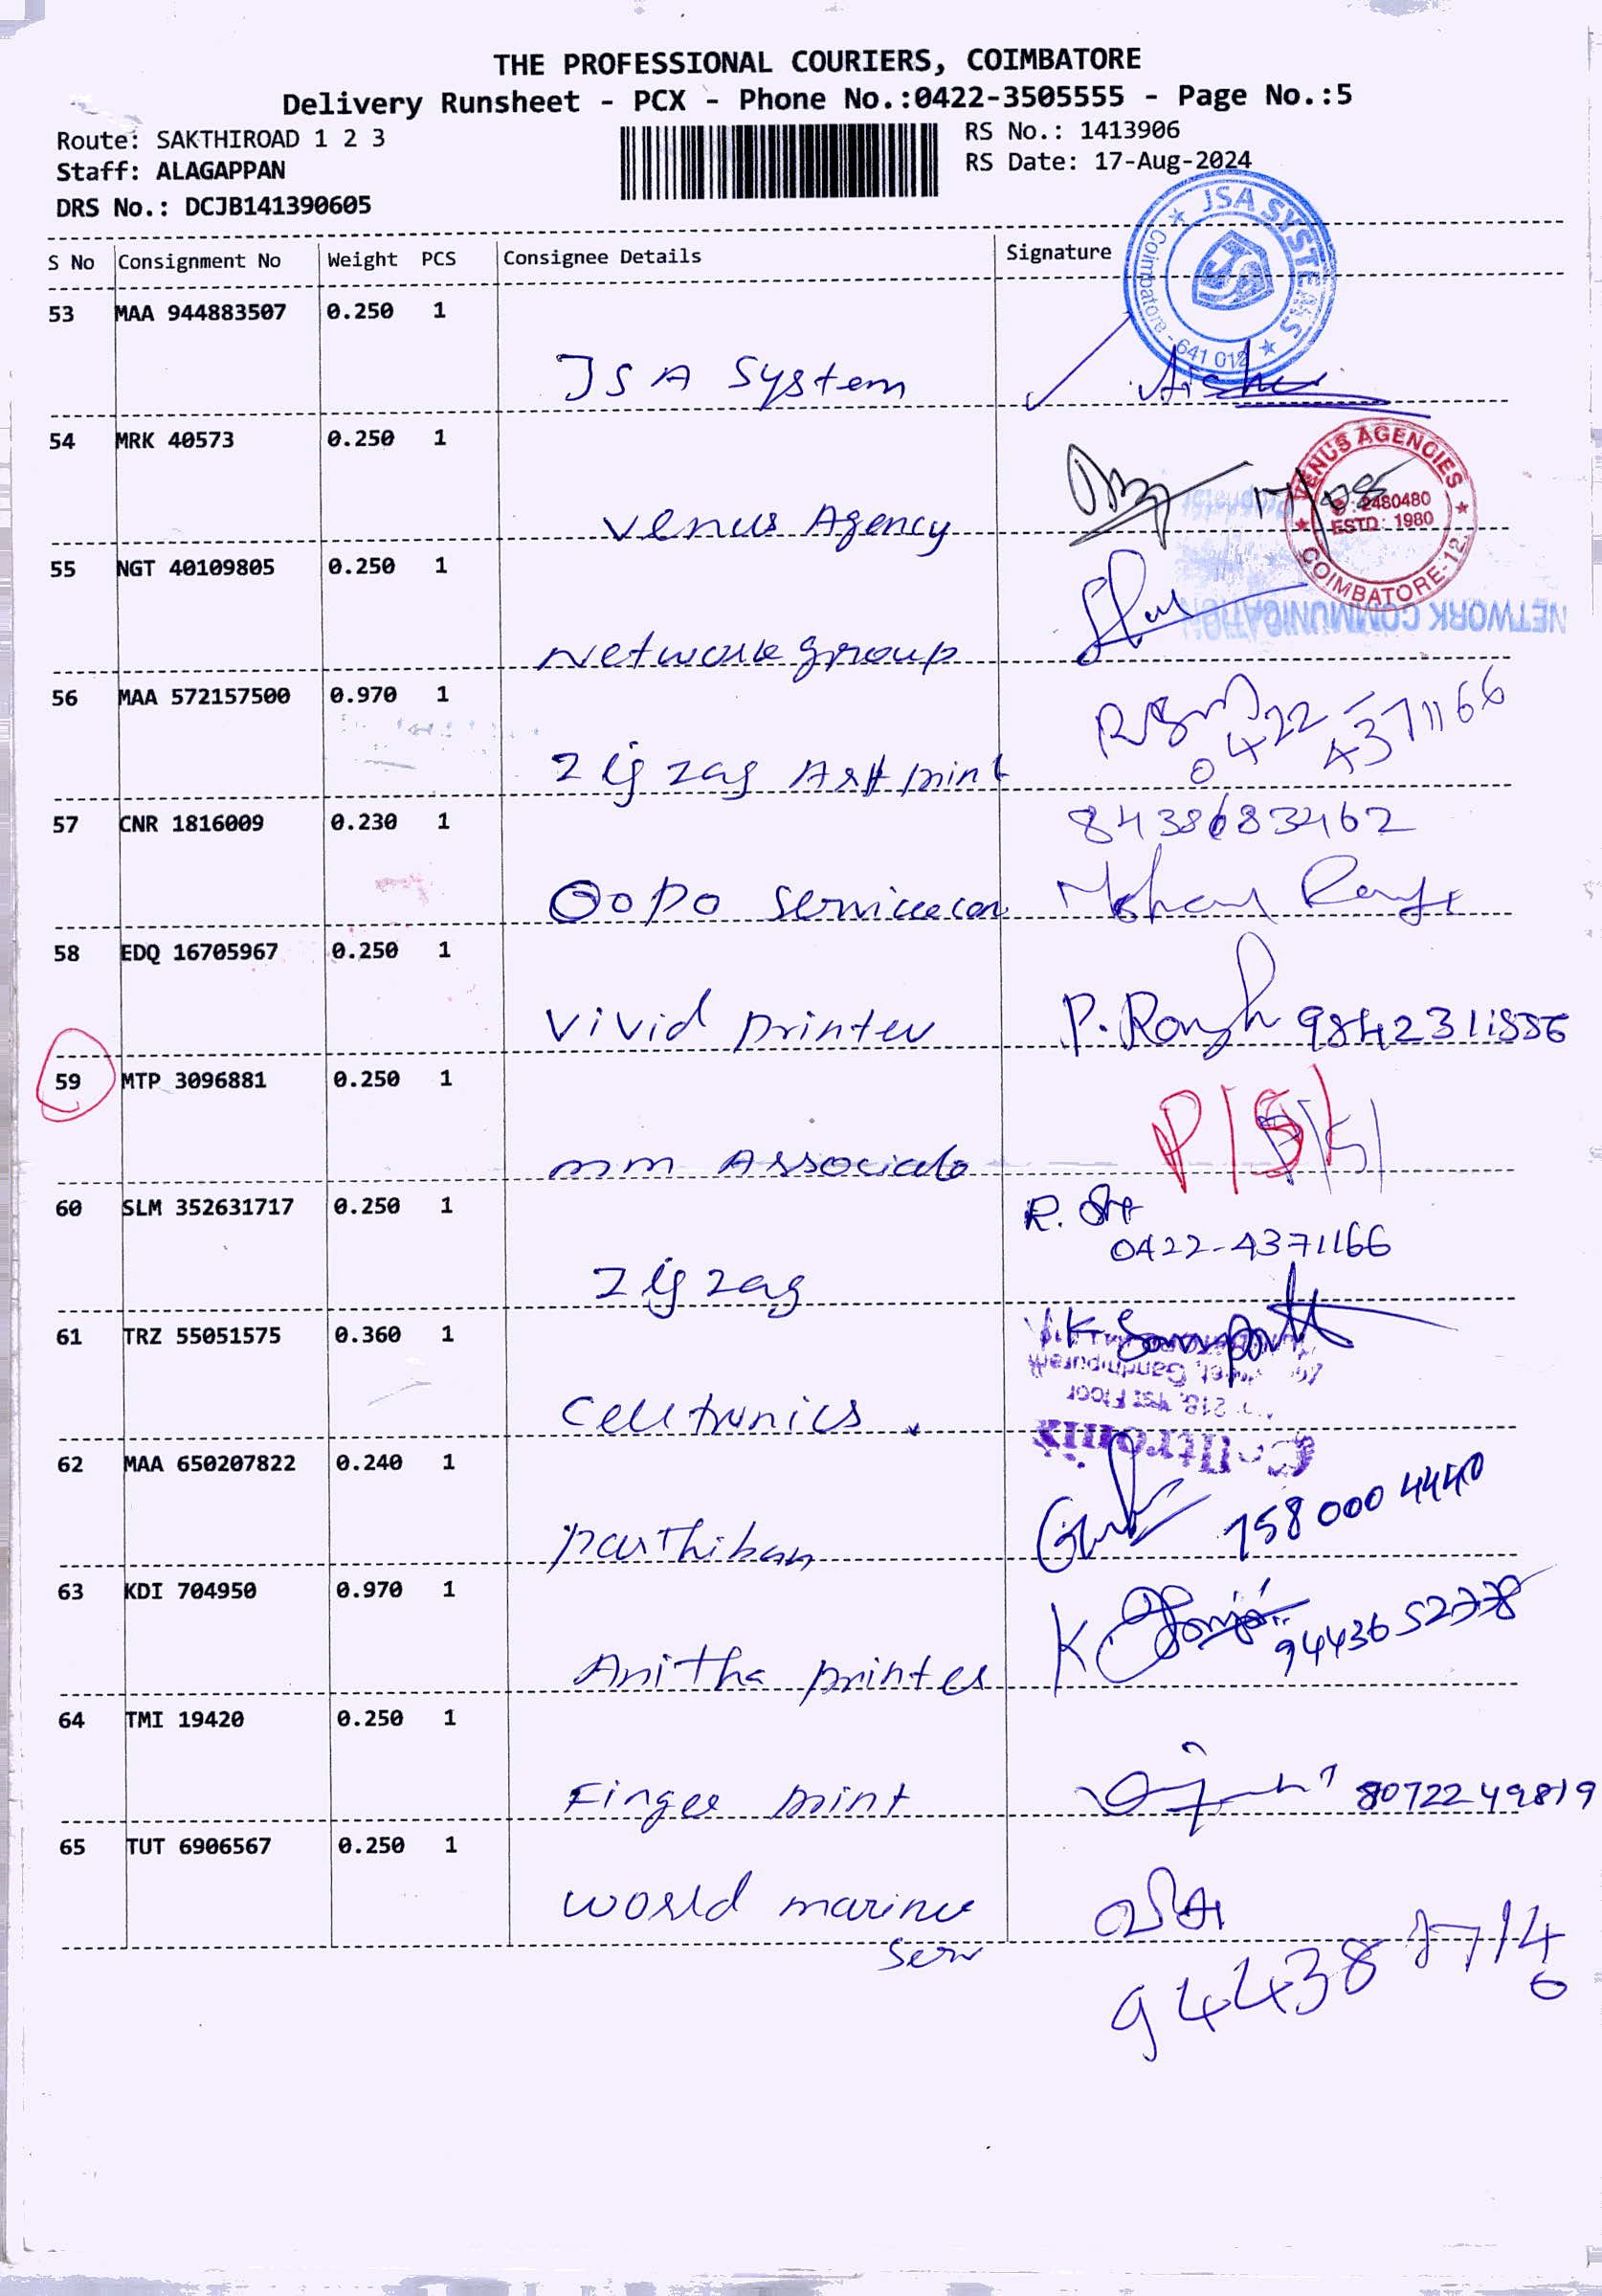 THE PROFESSIONAL COURIERS, COIMBATORE
Delivery Runsheet - PCX - Phone No.:0422-3505555 - Page No.:5
Route: SAKTHIROAD 1 2 3
RS No.: 1413906
Staff: ALAGAPPAN
RS Date: 17-Aug-2024
DRS No.: DCJB141390605
S No Consignment No Weight PCS Consignee Details Signature
JSA SYSTEMS
Coimbatore - 641 012
53 MAA 944883507 0.250 1
JSA System
54 MRK 40573 0.250 1
VENUS AGENCIES
2480480
ESTD: 1980
COIMBATORE-12
17/08
Venus Agency
55 NGT 40109805 0.250 1
NETWORK COMMUNICATION
Network group
56 MAA 572157500 0.970 1
0422-4371166
Zig zag Art print
57 CNR 1816009 0.230 1
8438683462
OoPo servicecen
Mohan
58 EDQ 16705967 0.250 1
Vivid printer
P. 
59 MTP 3096881 0.250 1
P/S/
mm Associate
60 SLM 352631717 0.250 1
R.
0422-4371166
Zig zag
61 TRZ 55051575 0.360 1
V.K Sampath
218, 1st Floor
Celltronix
Celltronics
62 MAA 650207822 0.240 1
758 000 4440
Parthiban
63 KDI 704950 0.970 1
K
Anitha printer
64 TMI 19420 0.250 1
Finger print
8072249819
65 TUT 6906567 0.250 1
World marine
Serv